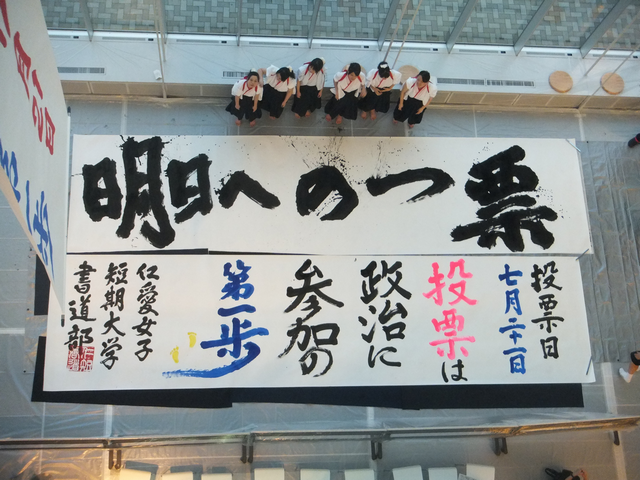 明日への一票
投票日
七月二十一日
投票は
政治に
参加の
第一歩
仁愛女子
短期大学
書道部